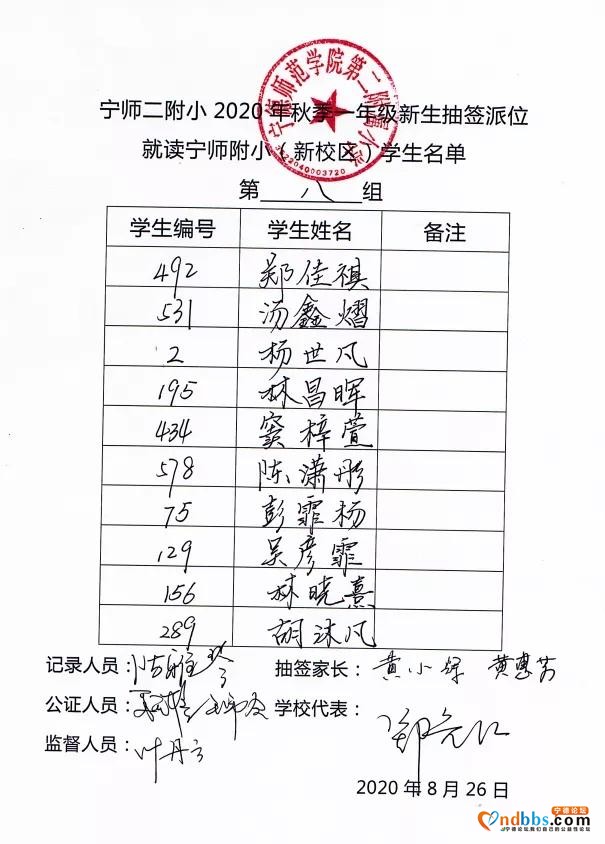 宁师二附小2020年秋季一年级新生抽签派位
就读宁师附小（新校区）学生名单
宁德师范学院第二附属小学
3522040003720
第 八 组
学生编号 学生姓名 备注
492 郑佳祺
531 汤鑫熠
2 杨世凡
195 林昌晖
434 窦梓萱
578 陈潇彤
75 彭霏杨
129 吴彦霏
156 林晓熹
289 胡沐凡
记录人员： 抽签家长：黄小 黄惠芳
公证人员： 学校代表：
监督人员：叶丹
2020年8月26日
宁德论坛
ndbbs.com
宁德论坛我们自己的公益性论坛